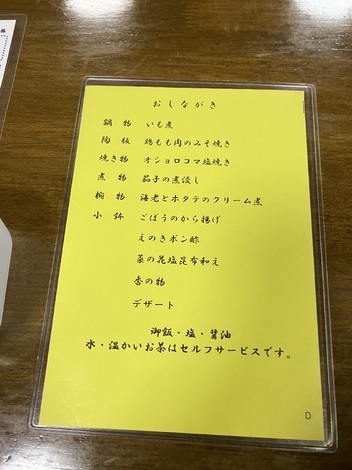 おしながき
鍋物 いも煮
陶板 鶏もも肉のみそ焼き
焼き物 オショロコマ塩焼き
煮物 茄子の煮浸し
椀物 海老とホタテのクリーム煮
小鉢 ごぼうのから揚げ
えのきポン酢
菜の花塩昆布和え
香の物
デザート
御飯・塩・醤油
水・温かいお茶はセルフサービスです。
D